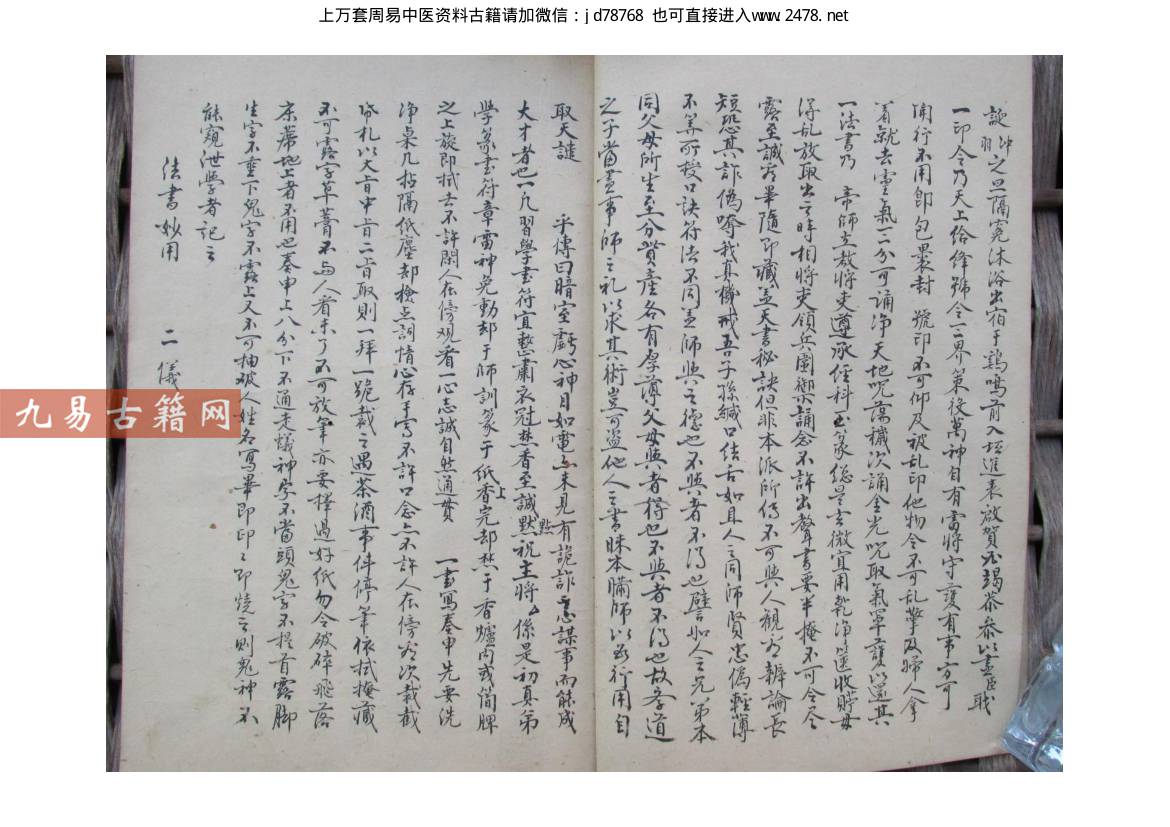 上万套周易中医资料古籍请加微信：jd78768 也可直接进入www.2478.net
之旦隔宽沐浴出宿于鷄鳴前入坛進表啟賀不竭恭恭以盡臣職
一印令乃天上給降號令三界策役萬神自有雷將守護有事方可
開行不用卽包裹封號印不可仰及被乱印他物令不可乱擎及婦人拿
着就去灵氣三分可誦净天地咒蕩穢次誦金光咒取氣罩護以還其
一法書乃 帝師立教將吏遵承經科玉篆總是玄微宜用乾净篋收貯毋
得乱放取出之時相將吏領兵圍禦誦念不許出聲書要半掩不可令尽
露至誠看畢隨即藏盖天書秘訣但非本派所傳不可與人觀看辨論長
短恐其詐偽奪我真機戒吾子孫緘口結舌如且人之同師賢忠偽輕薄
不等所授口訣符法不同盖師與之德也不與者不得也譬如人之兄弟本
同父母所生至分貲產各有厚薄父母與者得也不與者不得也故學道
之子當盡事師之礼以求其術豈可盜他人之書昧本瞞師以為行用自
取天譴 乎傳曰暗室虧心神目如電亦未見有詭詐意謀事而能成
大才者也一凡習學書符宜整肅衣冠焚香至誠默點祝主將係是初真弟
學篆書符章雷神免動却于師訓篆于紙上香完却焚于香爐内或簡牌
之上旋即拭去不許閑人在傍观看一心志誠自然通貫 一書寫奏申先要洗
净桌几拈隔紙塵却檢点詞情心存高不許口念亦不許人在傍看次裁截
登札以大上中上二上取則一拜一跪裁之遇茶酒事件停筆依拭掩藏
不可露字草藁不与人看未了不可放筆亦要擇過好紙勿令破碎飛落
床蓆地上者不用也奏申上八分下不通走蟻神字不當頭鬼字不提首露脚
生字不垂下鬼字不露上又不可抽破人姓名寫畢即印印即燒之則鬼神不
能窺泄學者記之
法書妙用 二儀
九易古籍网